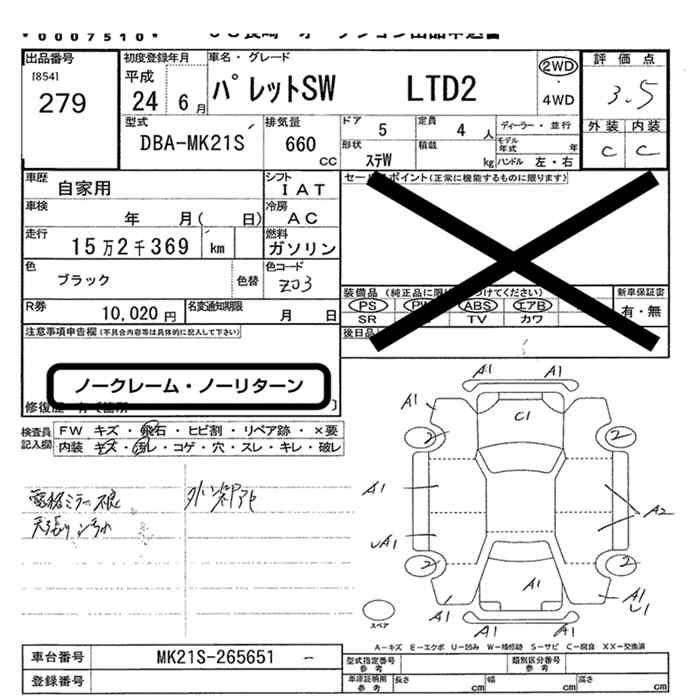 *0007510*
出品番号
[854]
279
初度登録年月
平成
24 6月
車名・グレード
パレットSW LTD2
2WD
・
4WD
評価点
3.5
外装 内装
C C
型式
DBA-MK21S
排気量
660
CC
ドア
5
定員
4 人
ディーラー・並行
モデル
年式 年
形状
ステW
積載
kg
ハンドル 左・右
車歴
自家用
シフト
IAT
車検
年 月( 日)
冷房
AC
走行
15万2千369 km
燃料
ガソリン
色
ブラック
色替
色コード
Z03
R券
10,020円
名変通知期限
月 日
セールスポイント(正常に機能するものに限ります)
PS
ABS
エアB
SR
TV
カワ
新車保証書
有・無
後日品
注意事項申告欄(不具合内容等は具体的に記入して下さい)
ノークレーム・ノーリターン
検査員
記入欄
FW キズ・飛石・ヒビ割・リペア跡・×要
内装 キズ・汚レ・コゲ・穴・スレ・キレ・破レ
A1 A1
A1
C1
2 2
A1
A2
A1
2 2
A1
A1
A1
A1 A1
スペア
A-キズ E-エクボ U-凹み W-補修跡 S-サビ C-腐食 XX-交換済
車台番号
MK21S-265651 -
登録番号
型式指定番号
参考
類別区分番号
参考
車庫証明用
参考
長さ cm
幅 cm
高さ cm